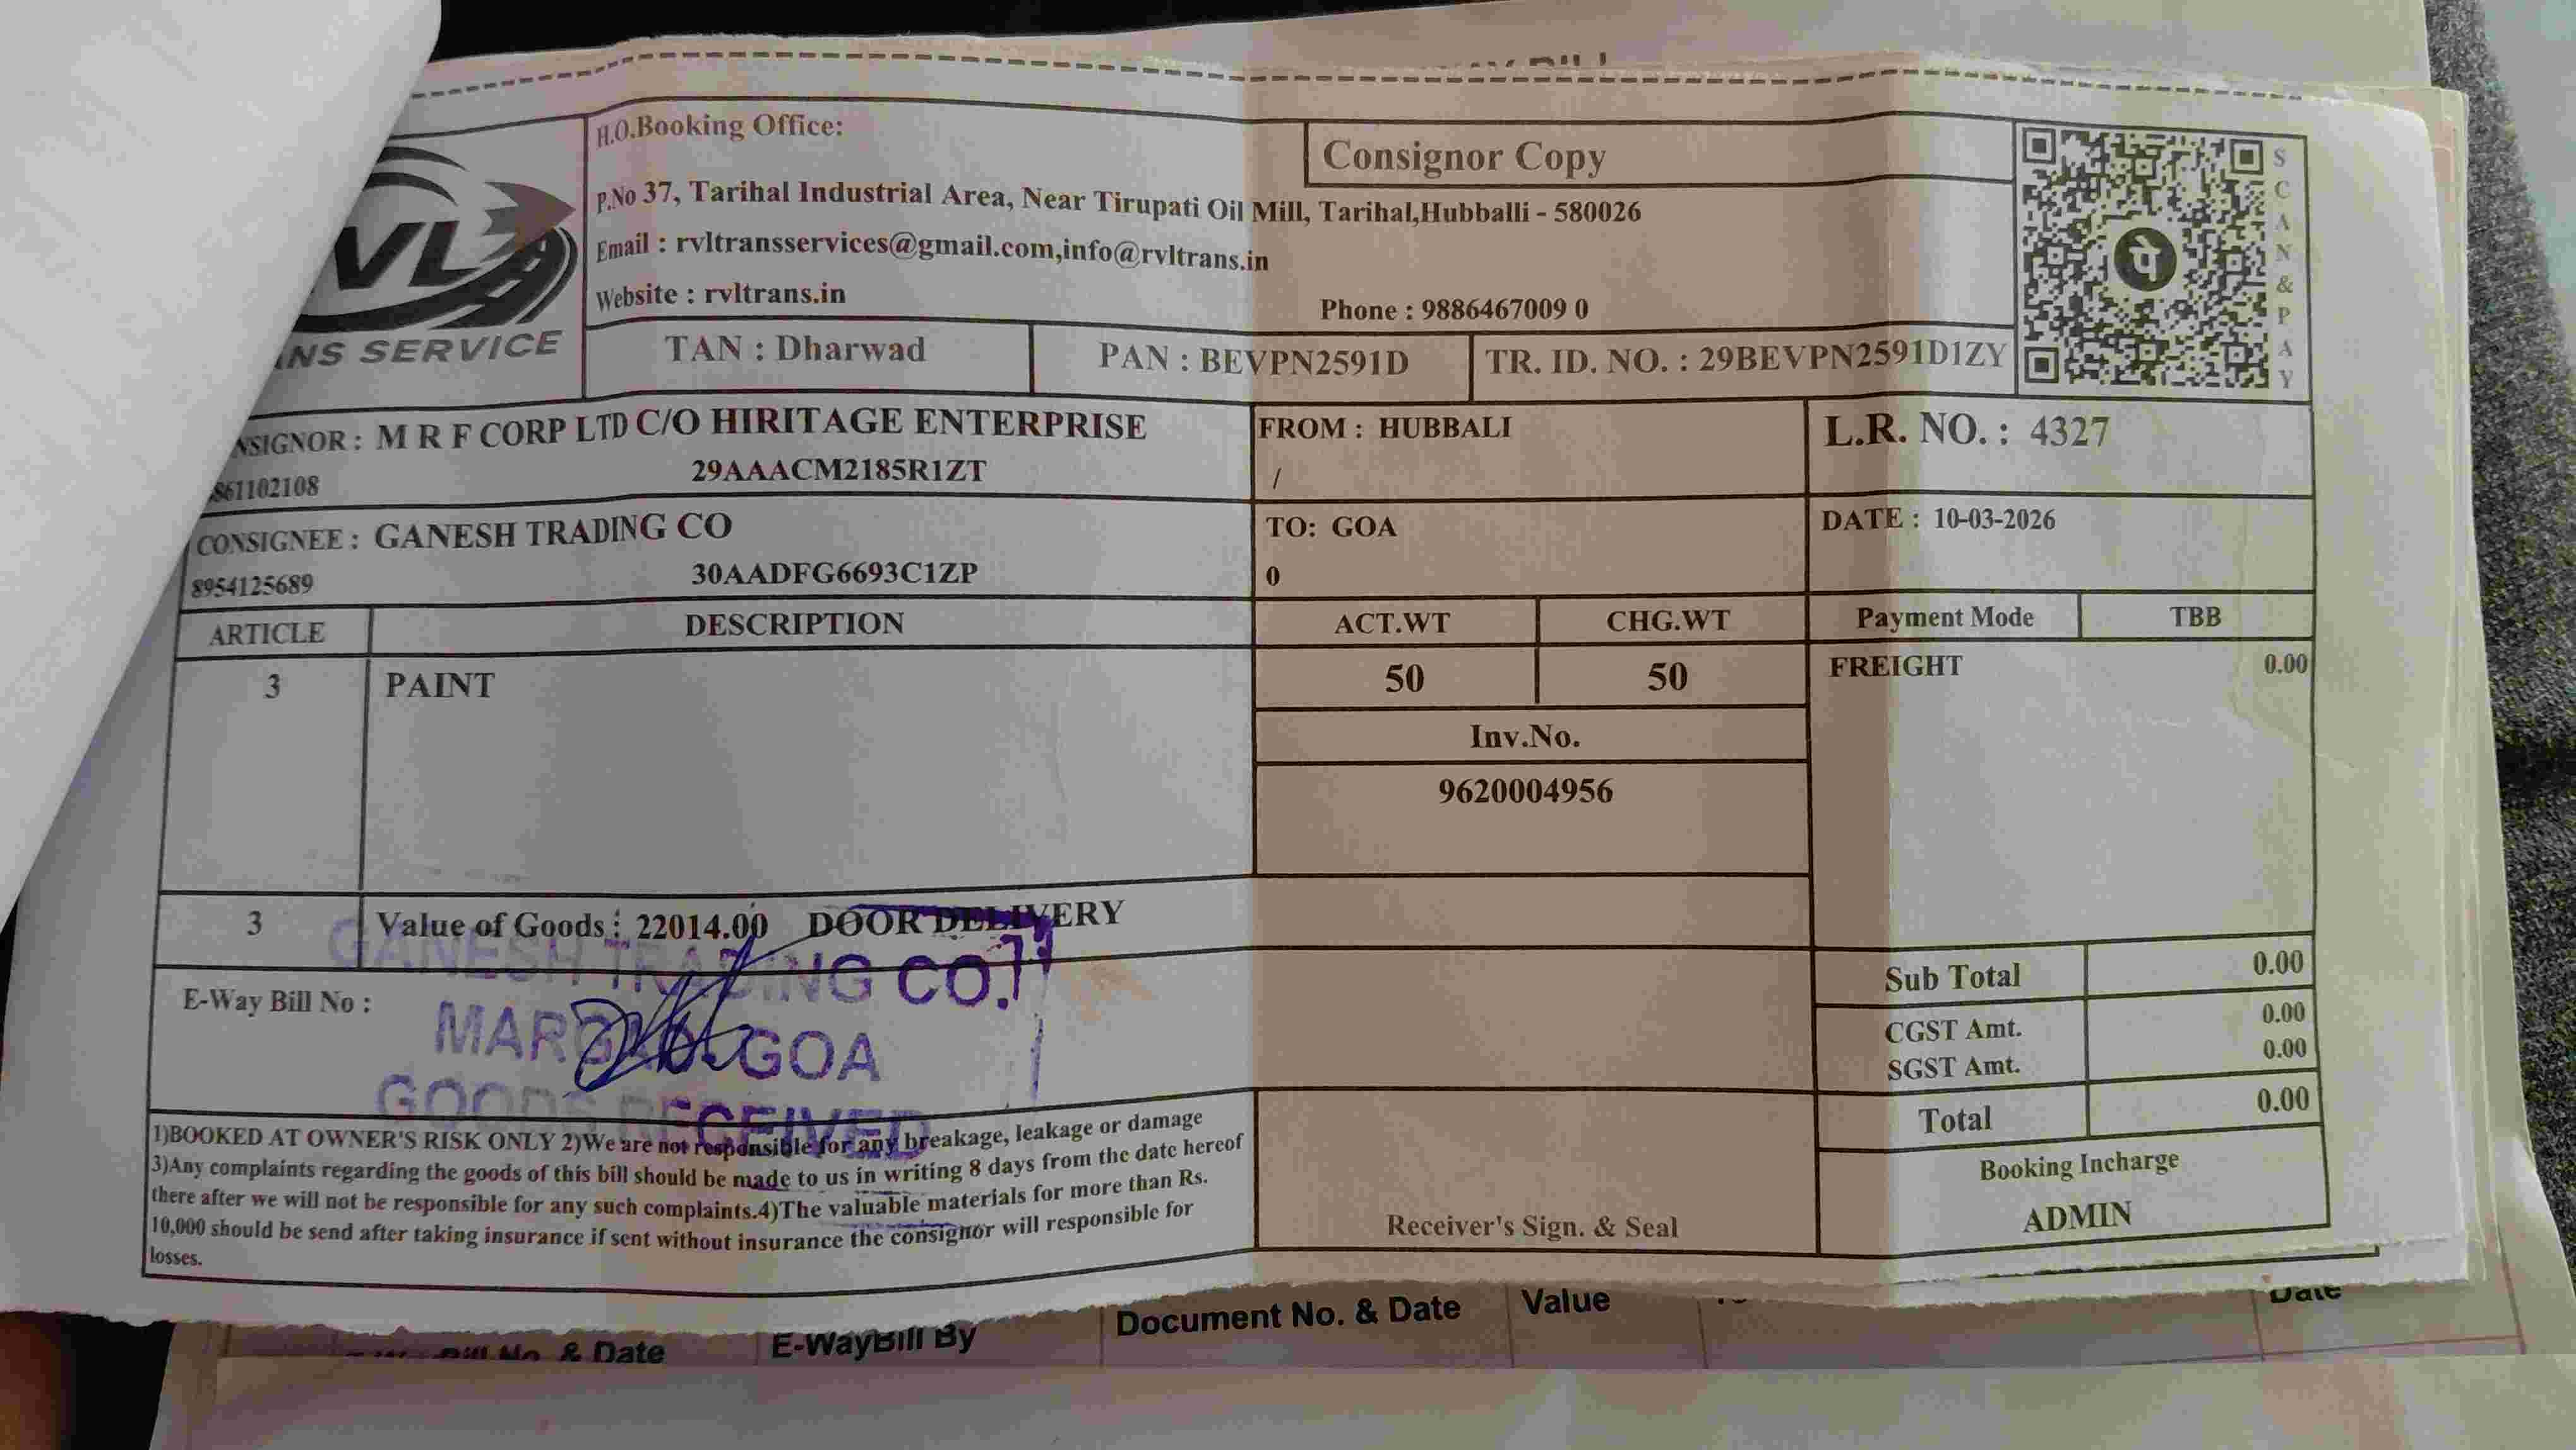 H.O.Booking Office:
Consignor Copy
P.No 37, Tarihal Industrial Area, Near Tirupati Oil Mill, Tarihal,Hubballi - 580026
Email : rvltransservices@gmail.com,info@rvltrans.in
Website : rvltrans.in
Phone : 9886467009 0
SCAN&PAY
पे
VL
NS SERVICE
TAN : Dharwad
PAN : BEVPN2591D
TR. ID. NO. : 29BEVPN2591D1ZY
NSIGNOR : M R F CORP LTD C/O HIRITAGE ENTERPRISE
861102108 29AAACM2185R1ZT
FROM : HUBBALI
/
L.R. NO. : 4327
CONSIGNEE : GANESH TRADING CO
8954125689 30AADFG6693C1ZP
TO: GOA
0
DATE : 10-03-2026
ARTICLE DESCRIPTION ACT.WT CHG.WT Payment Mode TBB
3 PAINT 50 50 FREIGHT 0.00
Inv.No.
9620004956
3 Value of Goods : 22014.00 DOOR DELIVERY
GANESH TRADING CO.
MARGAO. GOA
GOODS RECEIVED
E-Way Bill No :
Sub Total 0.00
CGST Amt. 0.00
SGST Amt. 0.00
Total 0.00
1)BOOKED AT OWNER'S RISK ONLY 2)We are not responsible for any breakage, leakage or damage
3)Any complaints regarding the goods of this bill should be made to us in writing 8 days from the date hereof
there after we will not be responsible for any such complaints.4)The valuable materials for more than Rs.
10,000 should be send after taking insurance if sent without insurance the consignor will responsible for
losses.
Receiver's Sign. & Seal
Booking Incharge
ADMIN
Bill No. & Date
E-WayBill By
Document No. & Date
Value
Date